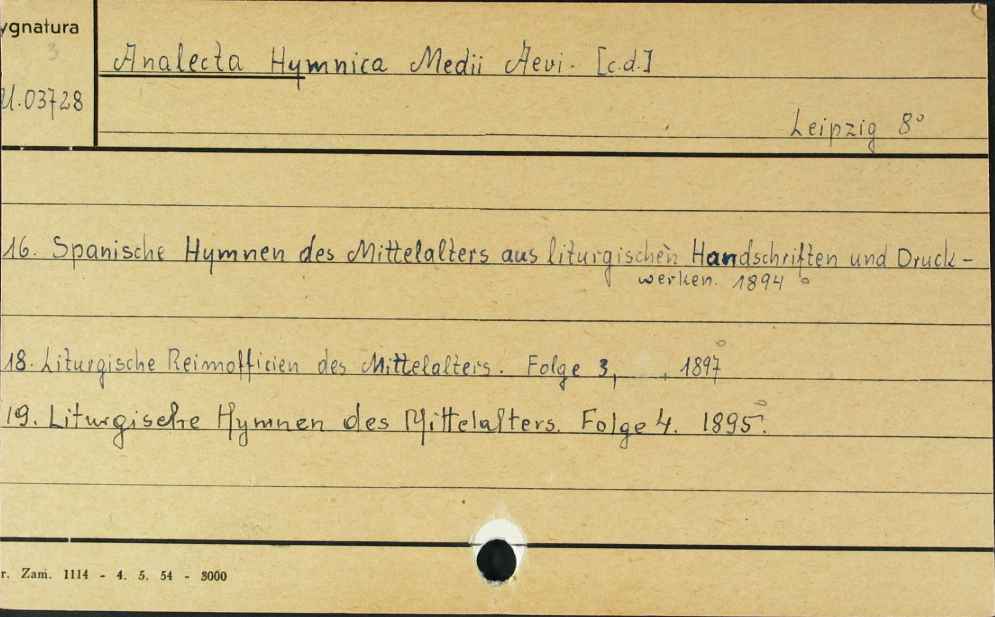 ygnatura
3
U.03728
Analecta Hymnica Medii Aevi. [c.d.]
Leipzig 8°
16. Spanische Hymnen des Mittelalters aus liturgischen Handschriften und Druck-
werken. 1894
18. Liturgische Reimofficien des Mittelalters. Folge 3, 1897
19. Liturgische Hymnen des Mittelalters. Folge 4. 1895.
r. Zam. 1114 - 4. 5. 54 - 3000